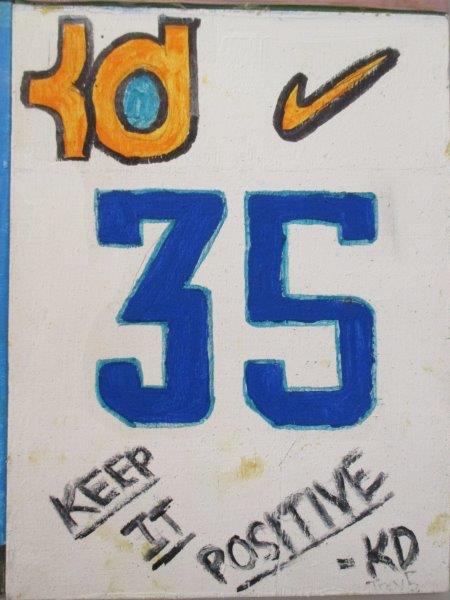 KD
35
KEEP
IT
POSITIVE
- KD